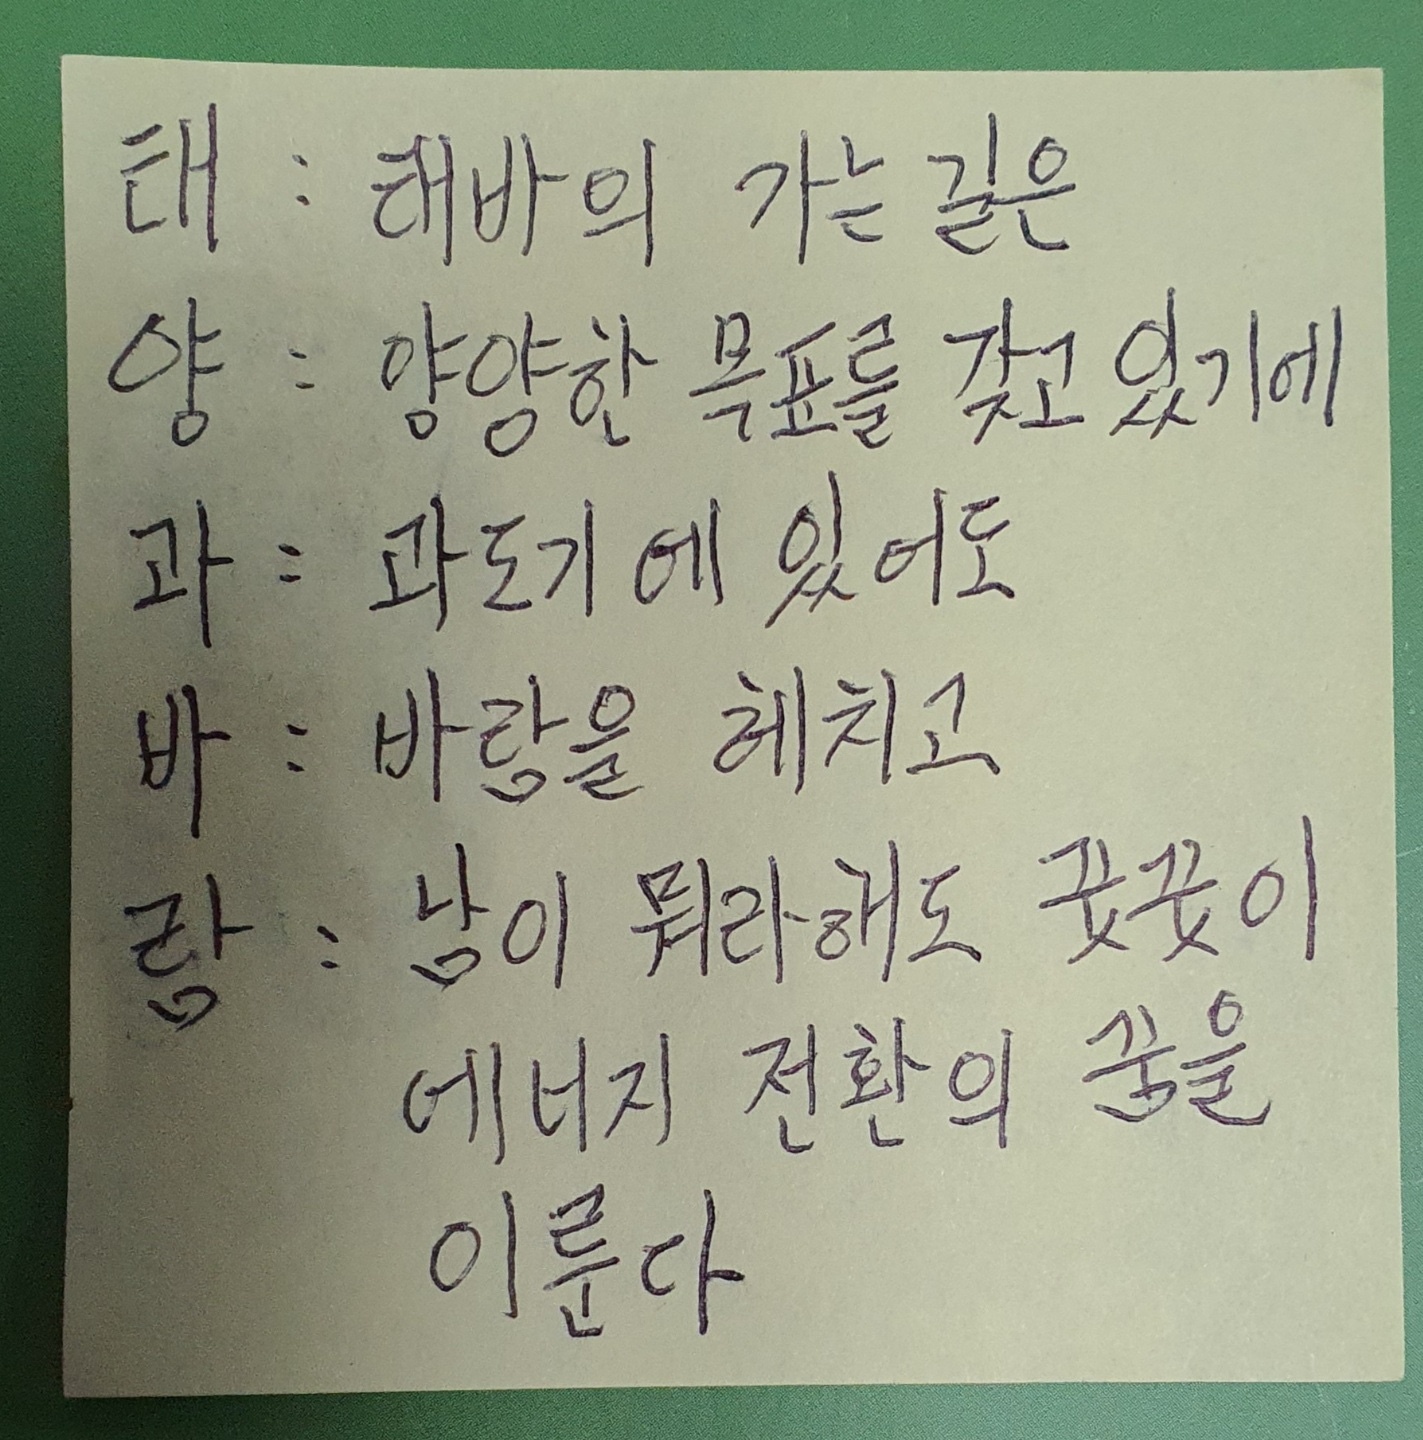 태 : 태바의 가는 길은
양 : 양양한 목표를 갖고 있기에
과 : 과도기에 있어도
바 : 바람을 헤치고
람 : 남이 뭐라해도 꿋꿋이
에너지 전환의 꿈을
이룬다